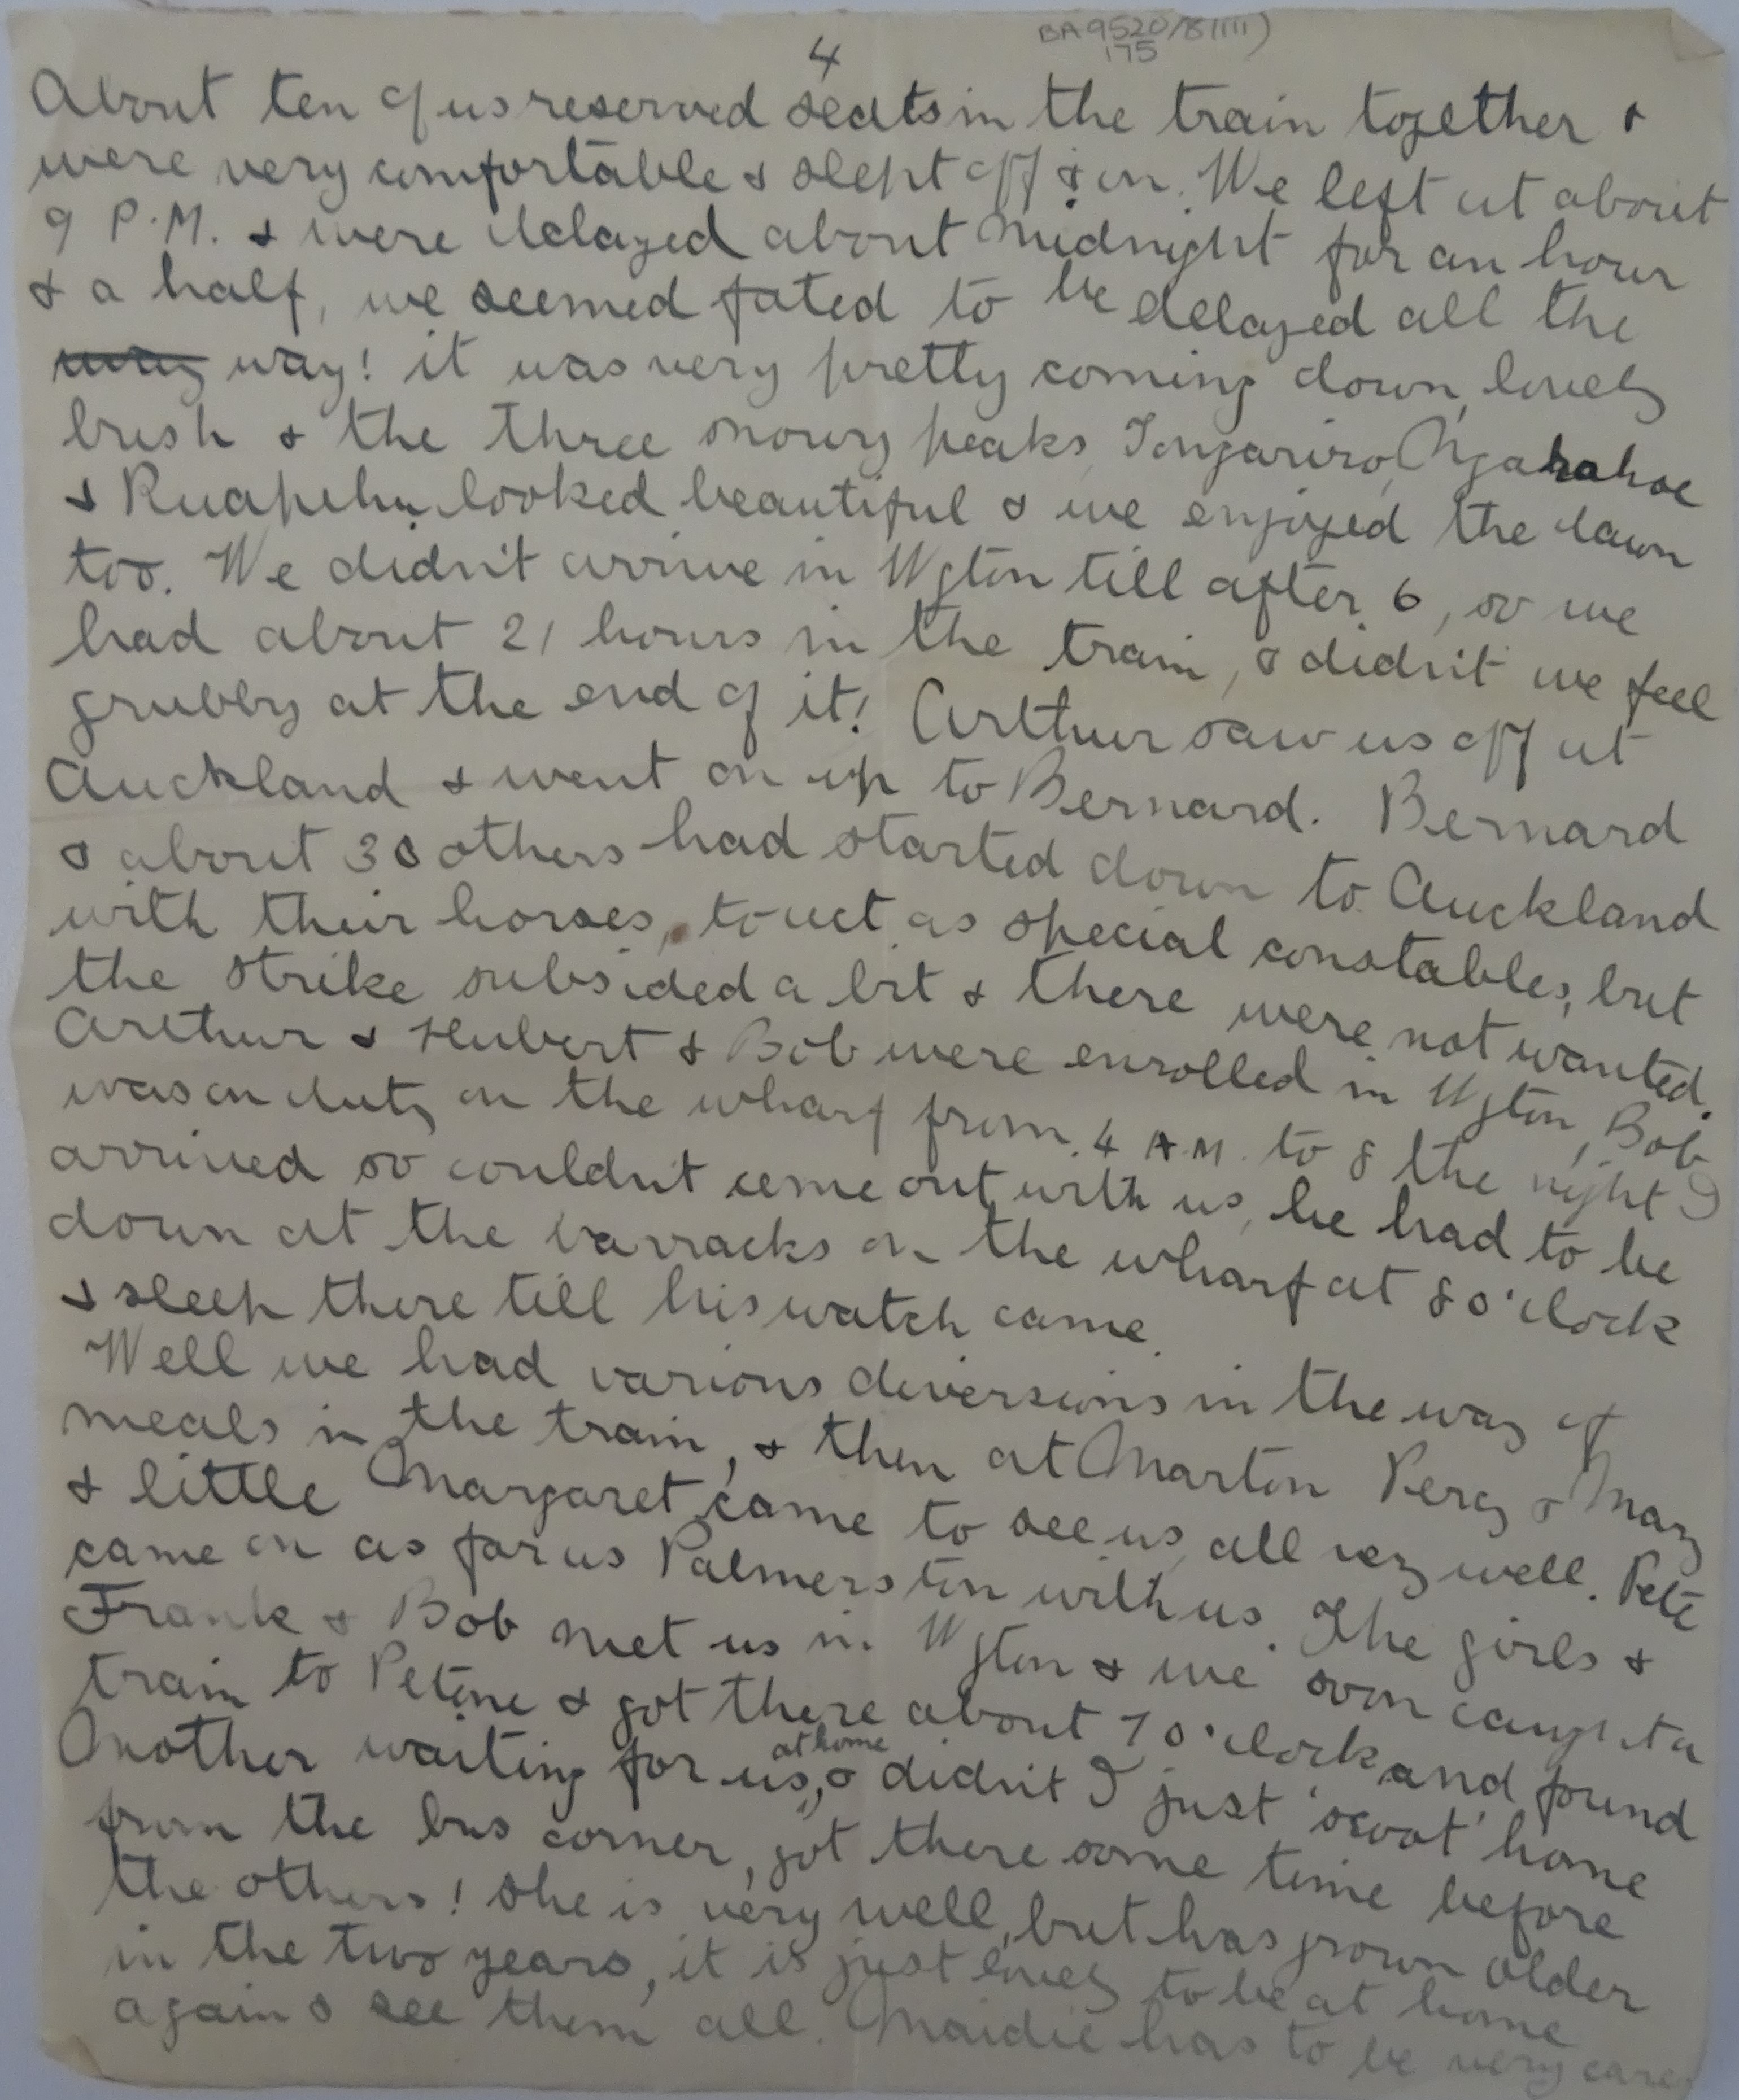 BA9520/8(III)
175
4
About ten of us reserved seats in the train together &
were very comfortable & slept off & on. We left at about
9 P.M. & were delayed about midnight for an hour
& a half, we seemed fated to be delayed all the
way way! it was very pretty coming down, lovely
bush & the three snowy peaks, Tongariro, Ngarahoe
& Ruapehu looked beautiful & we enjoyed the dawn
too. We didn't arrive in Wgton till after 6, so we
had about 21 hours in the train, & didn't we feel
grubby at the end of it! Arthur saw us off at
Auckland & went on up to Bernard. Bernard
& about 30 others had started down to Auckland
with their horses, to act as special constables, but
the strike subsided a bit & there were not wanted.
Arthur & Hubert & Bob were enrolled in Wgton, Bob
was on duty on the wharf from 4 A.M. to 8 the night I
arrived so couldn't come out with us, he had to be
down at the barracks on the wharf at 8 o'clock
& sleep there till his watch came.
Well we had various diversions in the way of
meals in the train, & then at Marton Percy & Mary
& little Margaret came to see us, all very well. Pete
came on as far as Palmerston with us. The girls &
Frank & Bob met us in Wgton & we soon caught a
train to Petone & got there about 7 o'clock and found
Mother waiting for us at home, & didn't I just 'scoot' home
from the bus corner, got there some time before
the others! She is very well, but has grown older
in the two years, it is just lovely to be at home
again & see them all. Maidie has to be very care